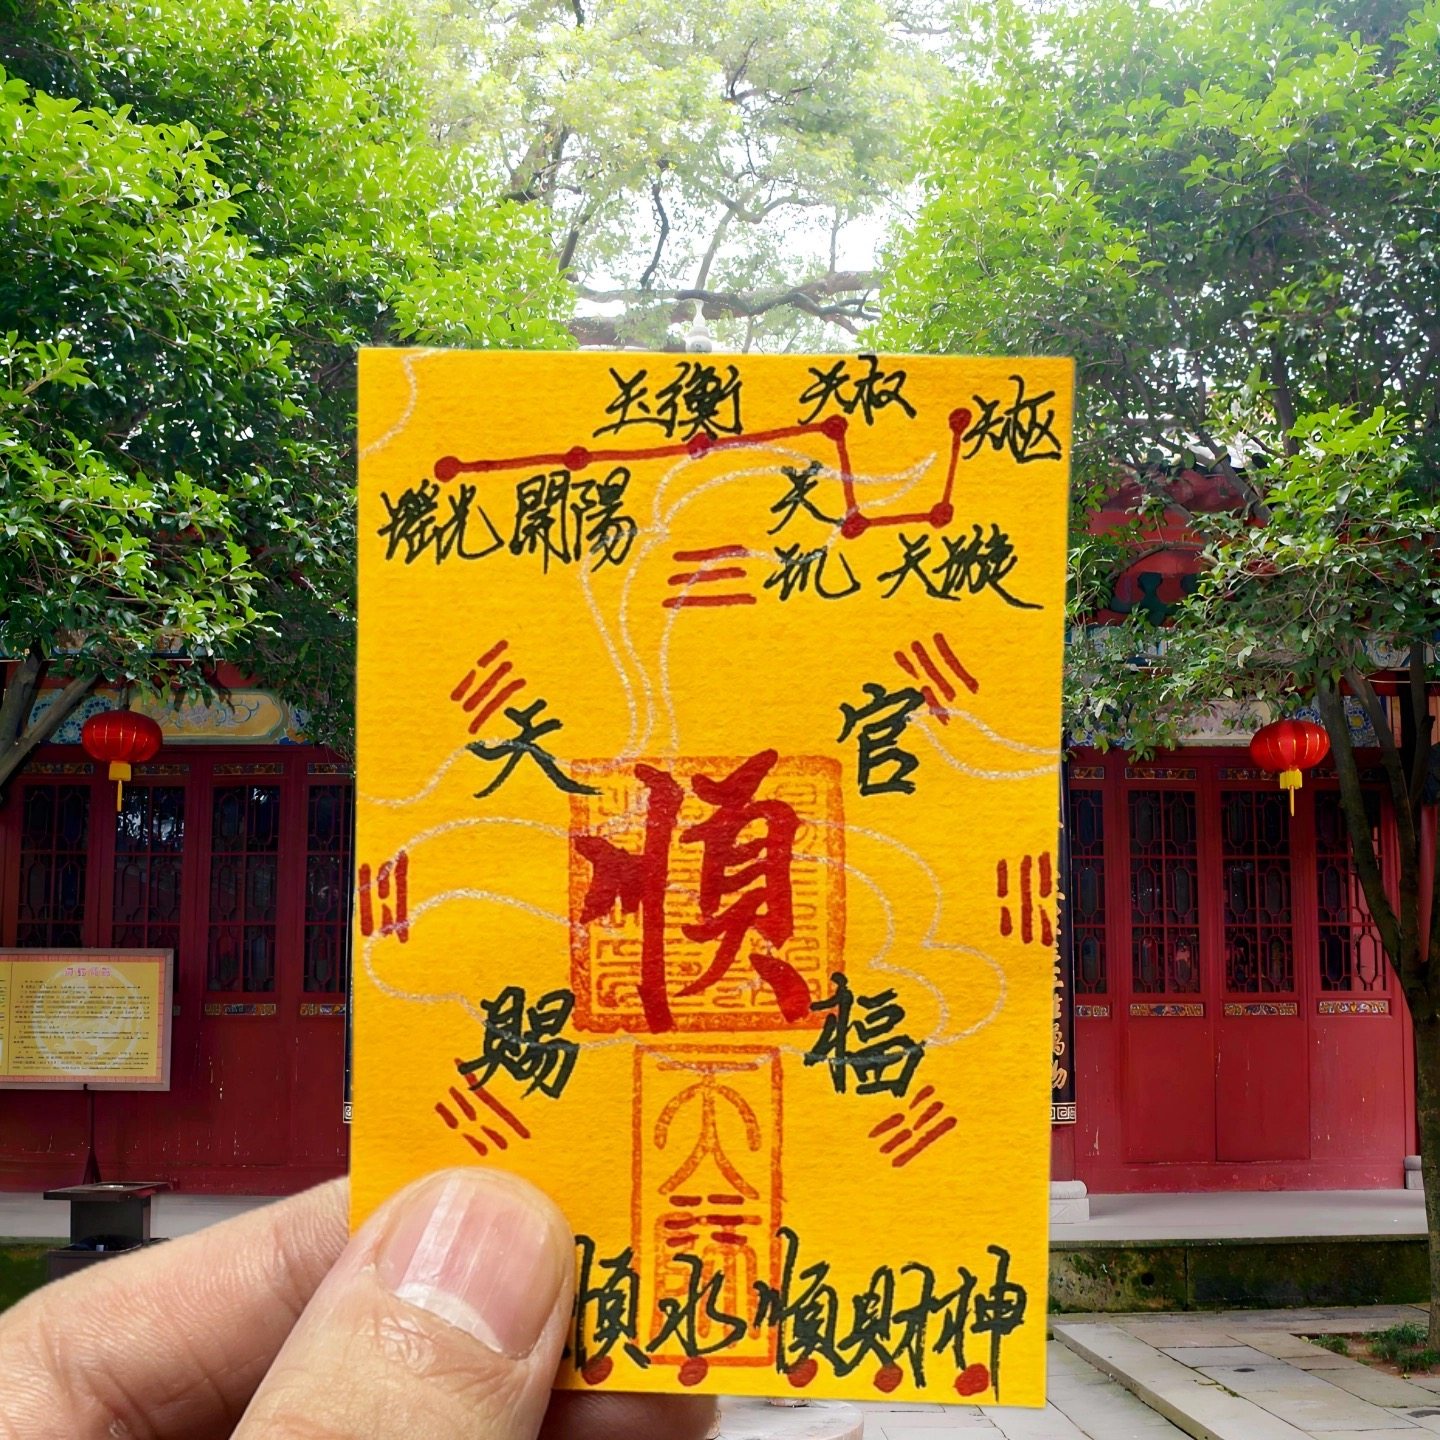 玉衡 天权 天枢
瑤光 開陽 天玑 天璇
天 官
順
賜 福
順永順財神